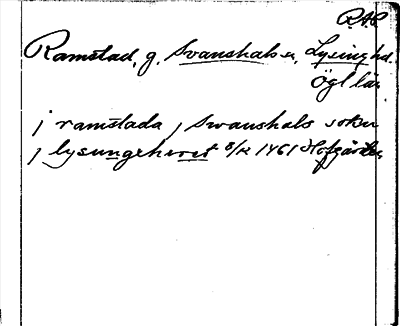 RAP
Ramstad, g. Svanshals sn, Lysing hd.
Ögl län
j ramstada j swanshals sokn
j lysungehæret 8/12 1461 Hofgården